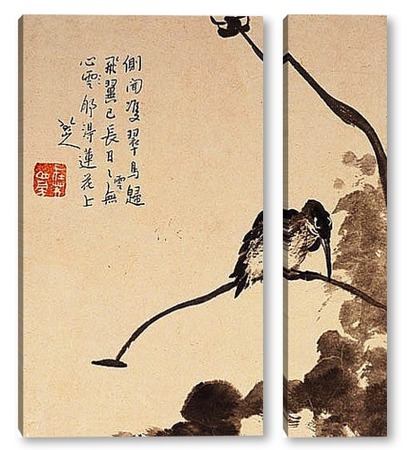 側聞雙翠鳥歸
飛翼已長日〻雲無
心雲那得蓮花上